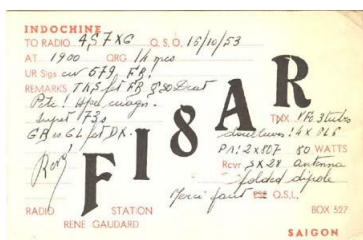 INDOCHINE
TO RADIO 4S7XG Q.S.O. 15/10/53
AT 1900 QRG 14 mcs
UR Sigs cw 579 FB!
REMARKS Tks for FB QSO Dear
Pete! Hpe cuagn.
73s
GB es GL for DX.
FI8AR
TX VFO 3
doublers: 4X
PA: 2x807 50 WATTS
Rcvr SX28 Antenna
folded dipole
Merci pour Q.S.L.
RADIO STATION
RENE GAUDARD
BOX 327
SAIGON